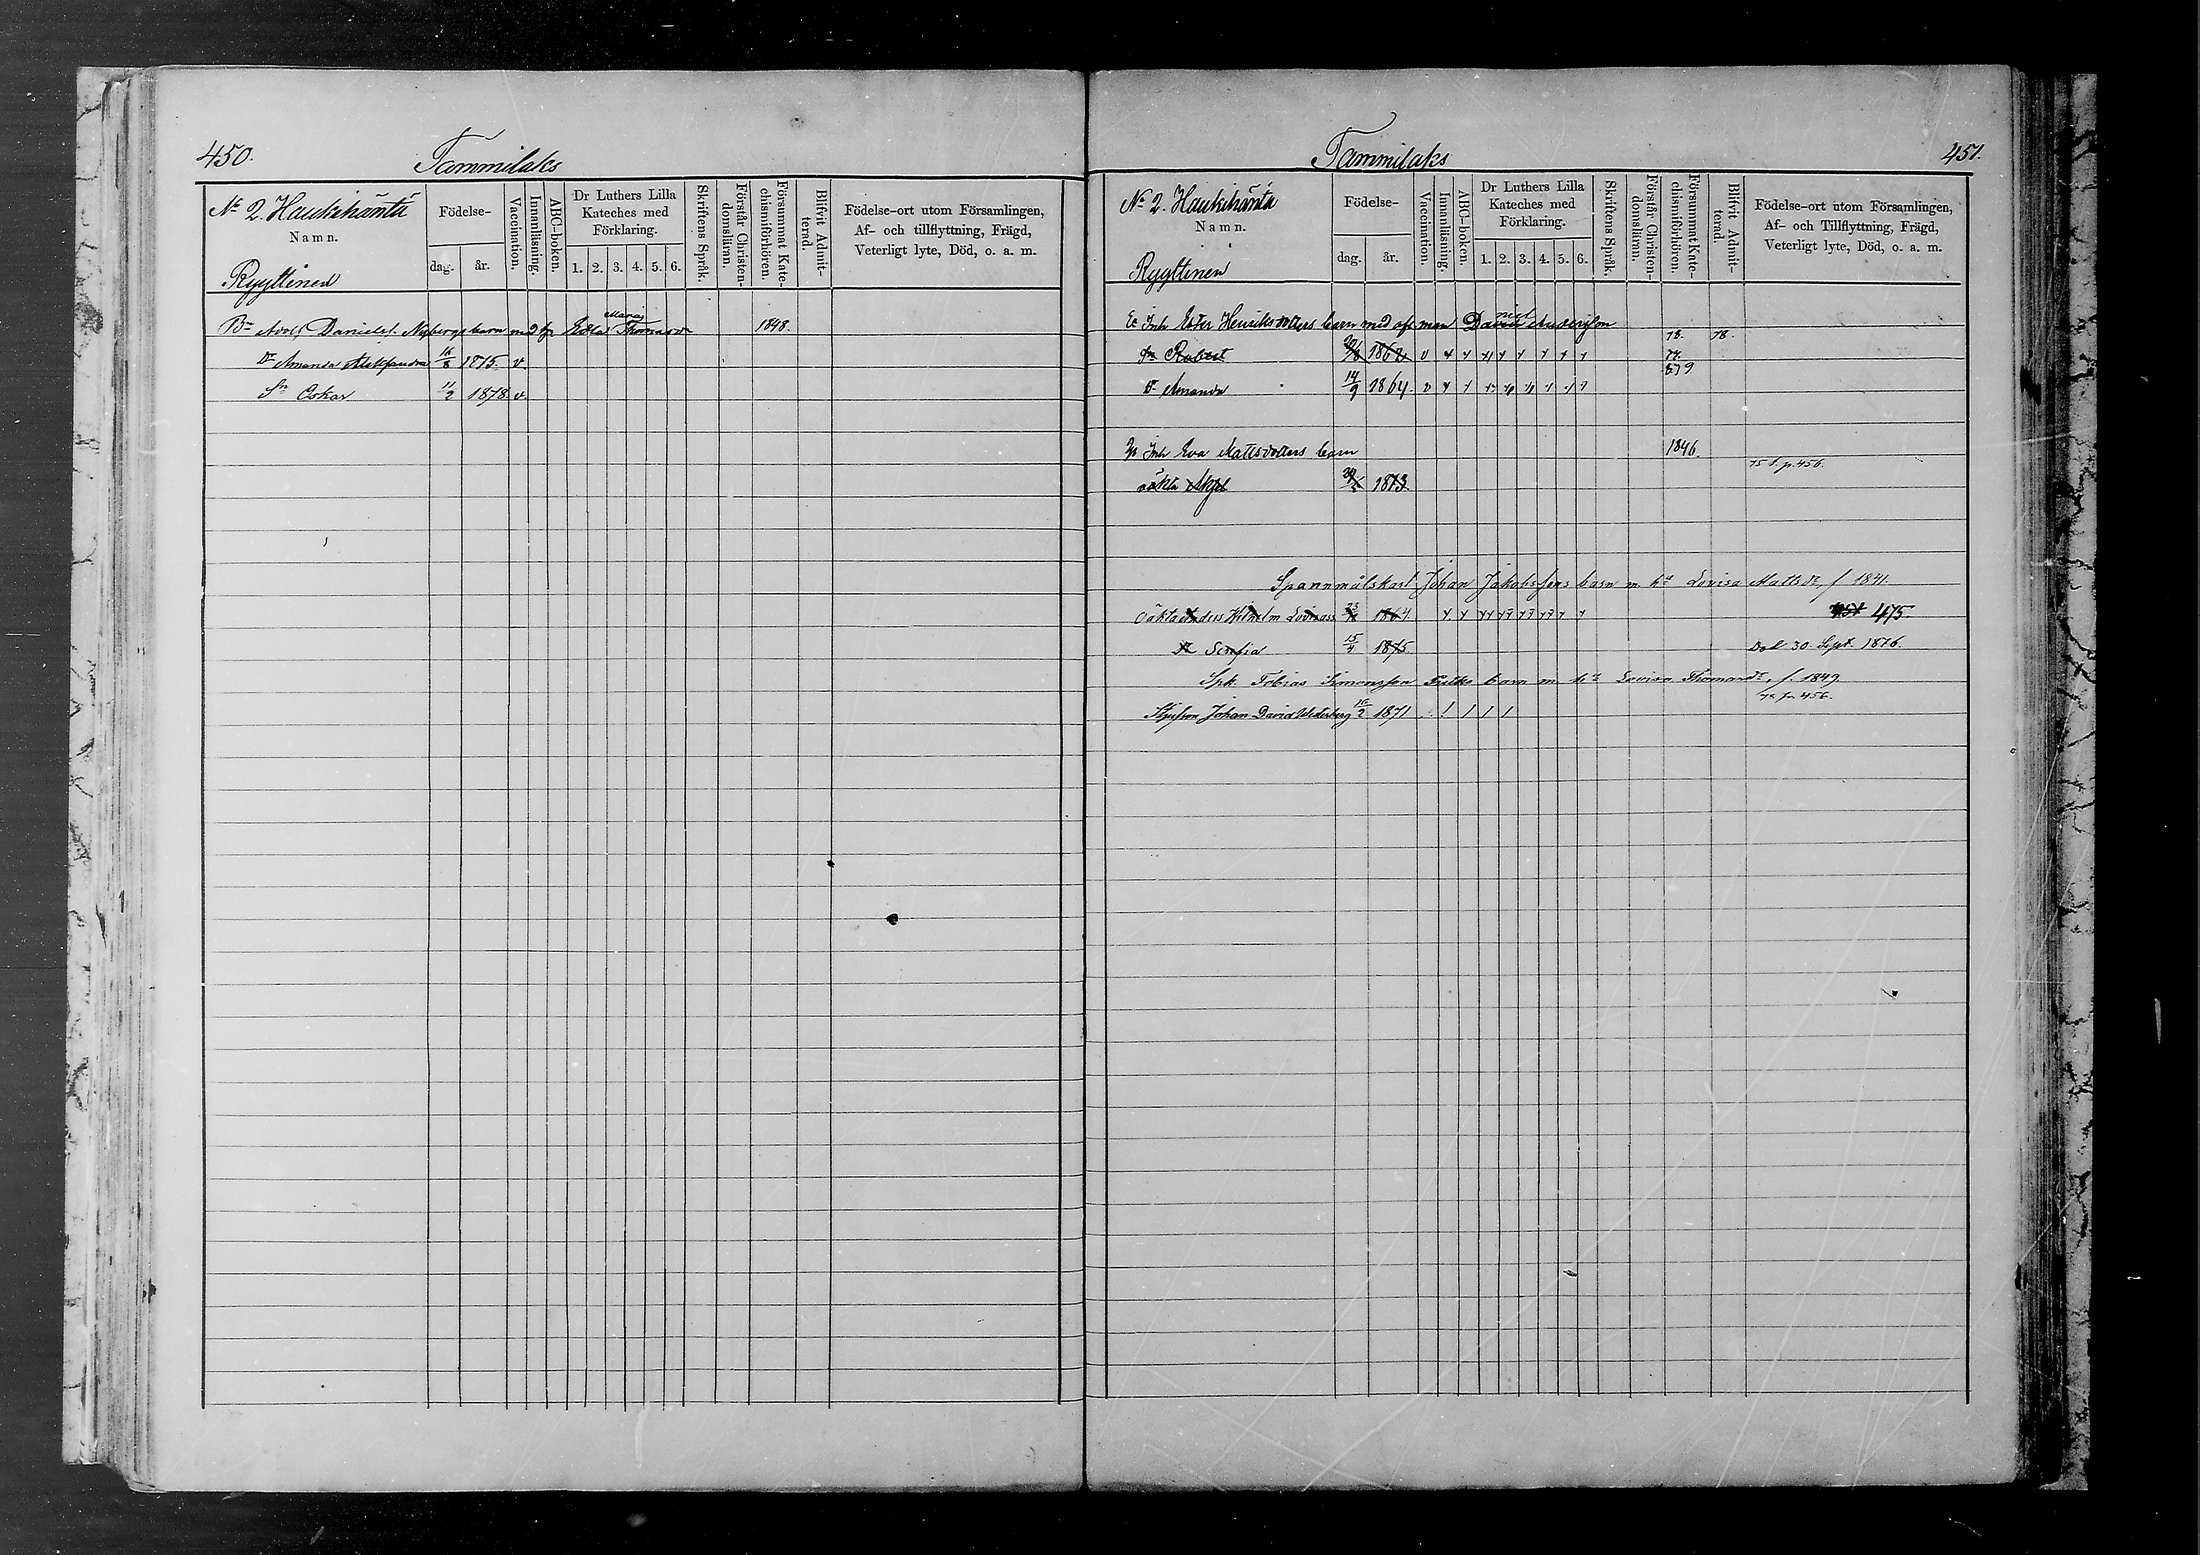 450.
Tammilaks
No 2. Haukihäntä
Namn.
Ryyttinen
Födelse-
dag. år.
Vaccination.
Innanläsning.
ABC-boken.
Dr Luthers Lilla
Kateches med
Förklaring.
1. 2. 3. 4. 5. 6.
Skriftens Språk.
Förstår Christen-
domsläran.
Försummat Kate-
chismiförhören.
Blifvit Admit-
terad.
Födelse-ort utom Församlingen,
Af- och tillflyttning, Frägd,
Veterligt lyte, Död, o. a. m.
Maria
Adolf Daniels Nybergs barn med Edla Thomasdr 1848.
Dr Amanda Aleksandra 16/8 1875. v.
Sn Oskar 11/2 1878. v.
Tammilaks
451.
No 2. Haukihäntä
Namn.
Ryyttinen
Födelse-
dag. år.
Vaccination.
Innanläsning.
ABC-boken.
Dr Luthers Lilla
Kateches med
Förklaring.
1. 2. 3. 4. 5. 6.
Skriftens Språk.
Förstår Christen-
domslära.
Försummat Kate-
chismiförhören.
Blifvit Admit-
terad.
Födelse-ort utom Församlingen,
Af- och Tillflyttning, Frägd,
Veterligt lyte, Död, o. a. m.
Inh Ester Henriksdotters barn med afl. man David Andersson
78. 78.
Sn Robert 1862 v
77.
879
Dr Amanda 14/9 1864. v
Inh Eva Mattsdotters barn 1846.
75 t. p. 456.
oäkta 1873
Spannmålskarl Johan Jakobssons barn m. hu Lovisa Mattsdr, f 1841.
Oäkta Anders Wilhelm Lovisas 23 1864. 475.
Dr 15/4 1875. Död 30 Sept. 1876.
Spk. Tobias Simonsson barn m. hu Lovisa Thomasdr, f. 1849
p. 456.
Styfson Johan David Westerberg 10/2 1871